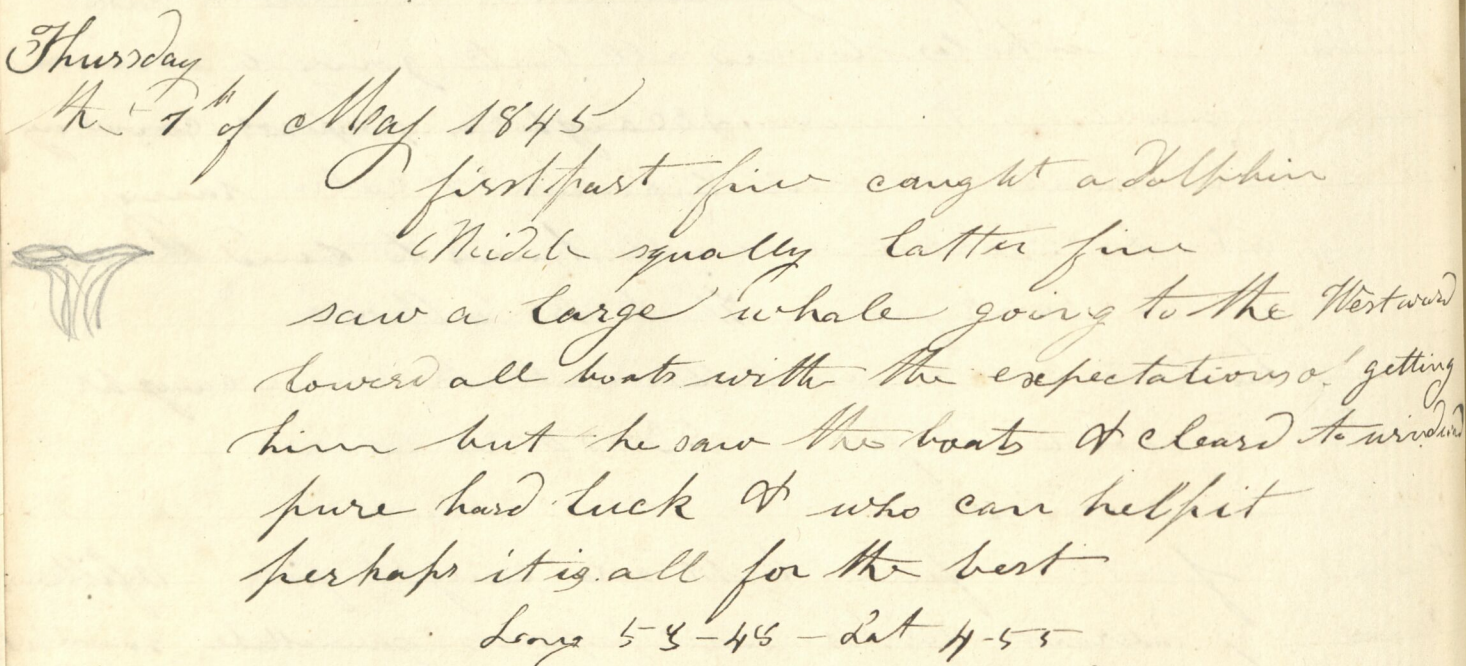 Thursday
the 7th of May 1845
first part fine caught a Dolphin
Middle squally latter fine
saw a large whale going to the Westward
lowerd all boats with the expectations of getting
him but he saw the boats & cleard to windward
pure hard luck & who can help it
perhaps it is all for the best
Long – Lat 4-55